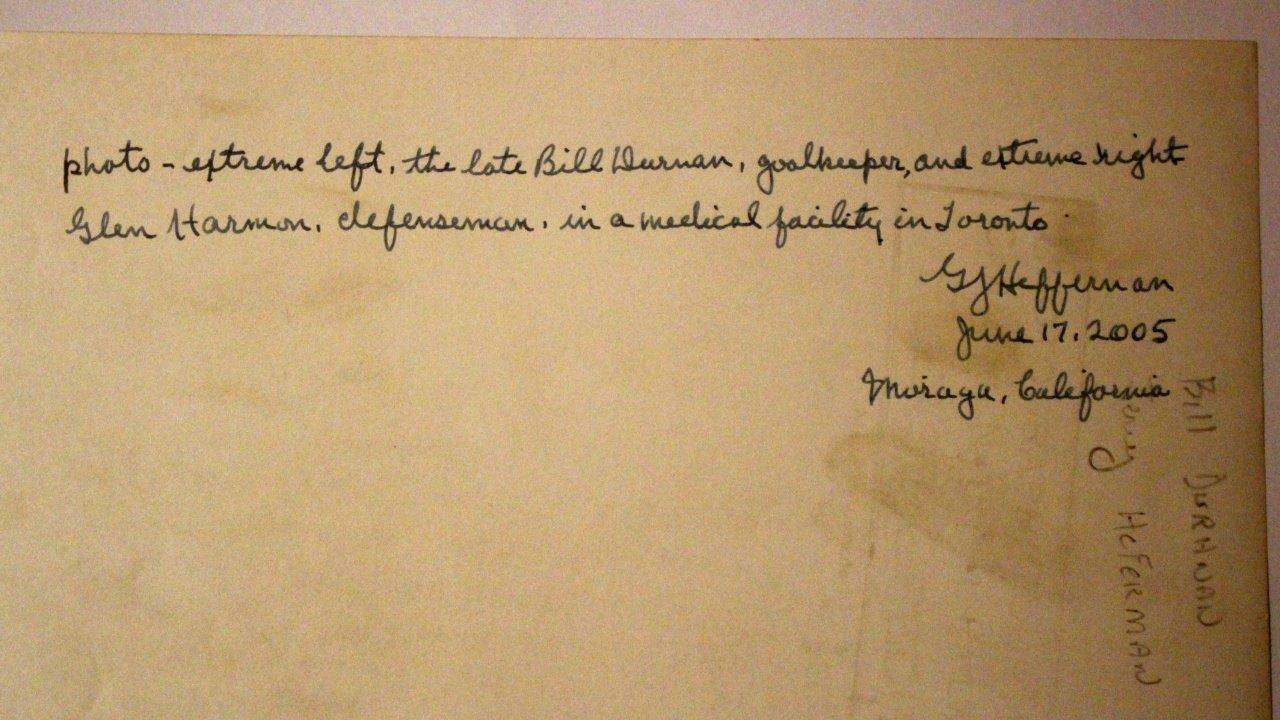 photo - extreme left, the late Bill Durnan, goalkeeper, and extreme right
Glen Harmon, defenseman, in a medical facility in Toronto.
GJ Heffernan
June 17, 2005
Moraga, California
Bill DURHNAN
HEFERMAN